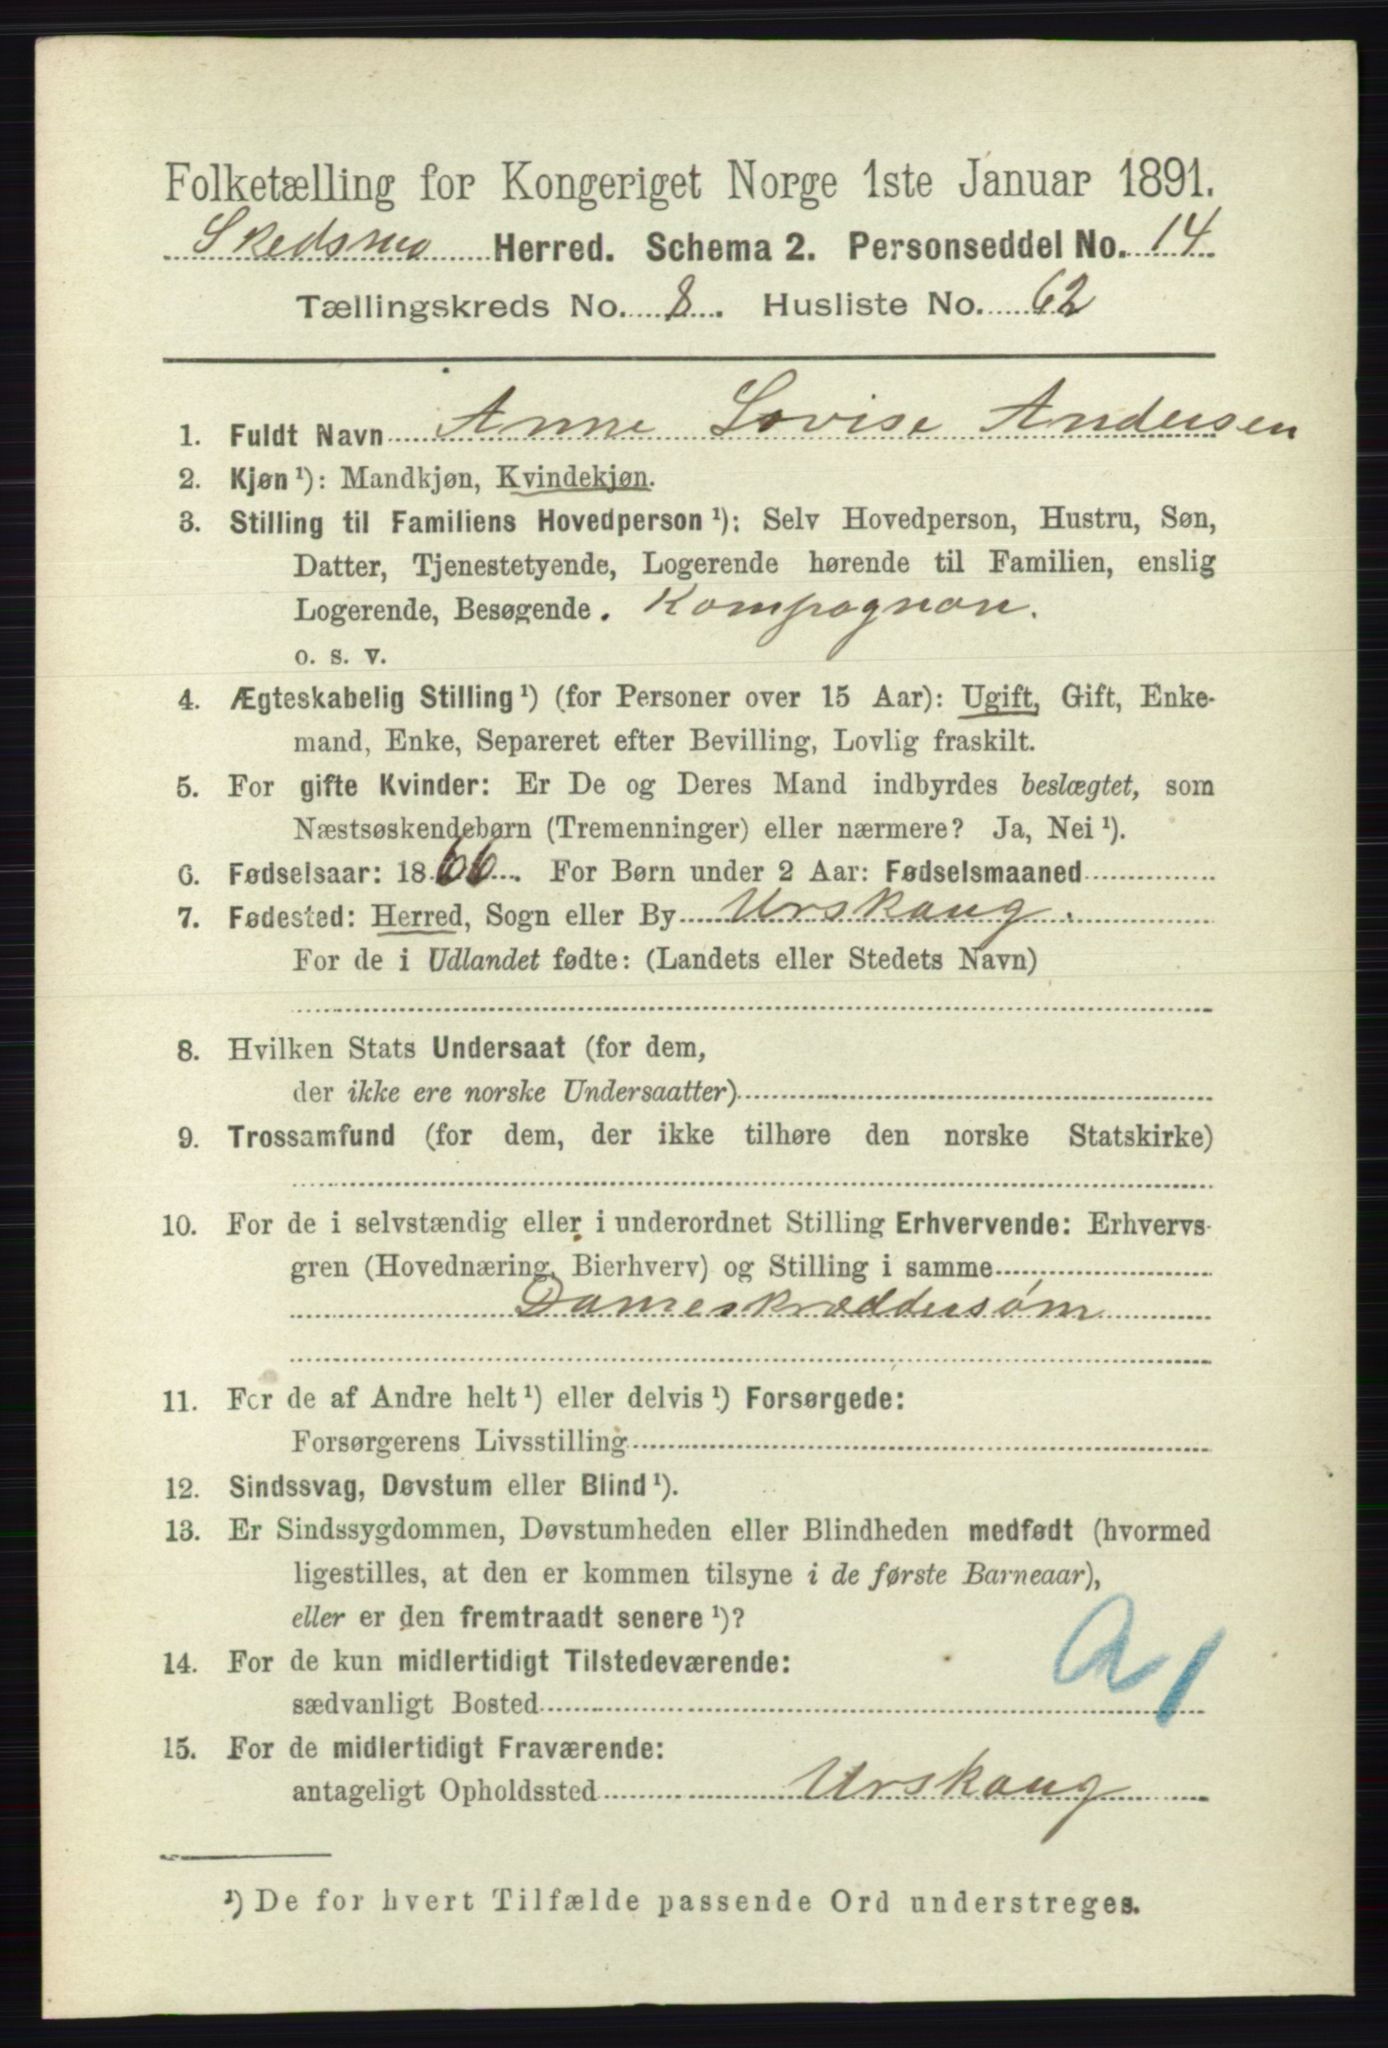 Folketælling for Kongeriget Norge 1ste Januar 1891.
Skedsmo Herred. Schema 2. Personseddel No. 14
Tællingskreds No. 8. Husliste No. 62
1. Fuldt Navn Anne Lovise Andersen
2. Kjøn ¹): Mandkjøn, Kvindekjøn.
3. Stilling til Familiens Hovedperson ¹): Selv Hovedperson, Hustru, Søn,
Datter, Tjenestetyende, Logerende hørende til Familien, enslig
Logerende, Besøgende. Kompagnon.
o. s. v.
4. Ægteskabelig Stilling ¹) (for Personer over 15 Aar): Ugift, Gift, Enke-
mand, Enke, Separeret efter Bevilling, Lovlig fraskilt.
5. For gifte Kvinder: Er De og Deres Mand indbyrdes beslægtet, som
Næstsøskendebørn (Tremenninger) eller nærmere? Ja, Nei ¹).
6. Fødselsaar: 1866. For Børn under 2 Aar: Fødselsmaaned
7. Fødested: Herred, Sogn eller By Urskoug.
For de i Udlandet fødte: (Landets eller Stedets Navn)
8. Hvilken Stats Undersaat (for dem,
der ikke ere norske Undersaatter)
9. Trossamfund (for dem, der ikke tilhøre den norske Statskirke)
10. For de i selvstændig eller i underordnet Stilling Erhvervende: Erhvervs-
gren (Hovednæring, Bierhverv) og Stilling i samme
Dameskræddersøm
11. For de af Andre helt ¹) eller delvis ¹) Forsørgede:
Forsørgerens Livsstilling
12. Sindssvag, Døvstum eller Blind ¹).
13. Er Sindssygdommen, Døvstumheden eller Blindheden medfødt (hvormed
ligestilles, at den er kommen tilsyne i de første Barneaar),
eller er den fremtraadt senere ¹)?
14. For de kun midlertidigt Tilstedeværende:
sædvanligt Bosted
15. For de midlertidigt Fraværende:
antageligt Opholdssted Urskoug
¹) De for hvert Tilfælde passende Ord understreges.